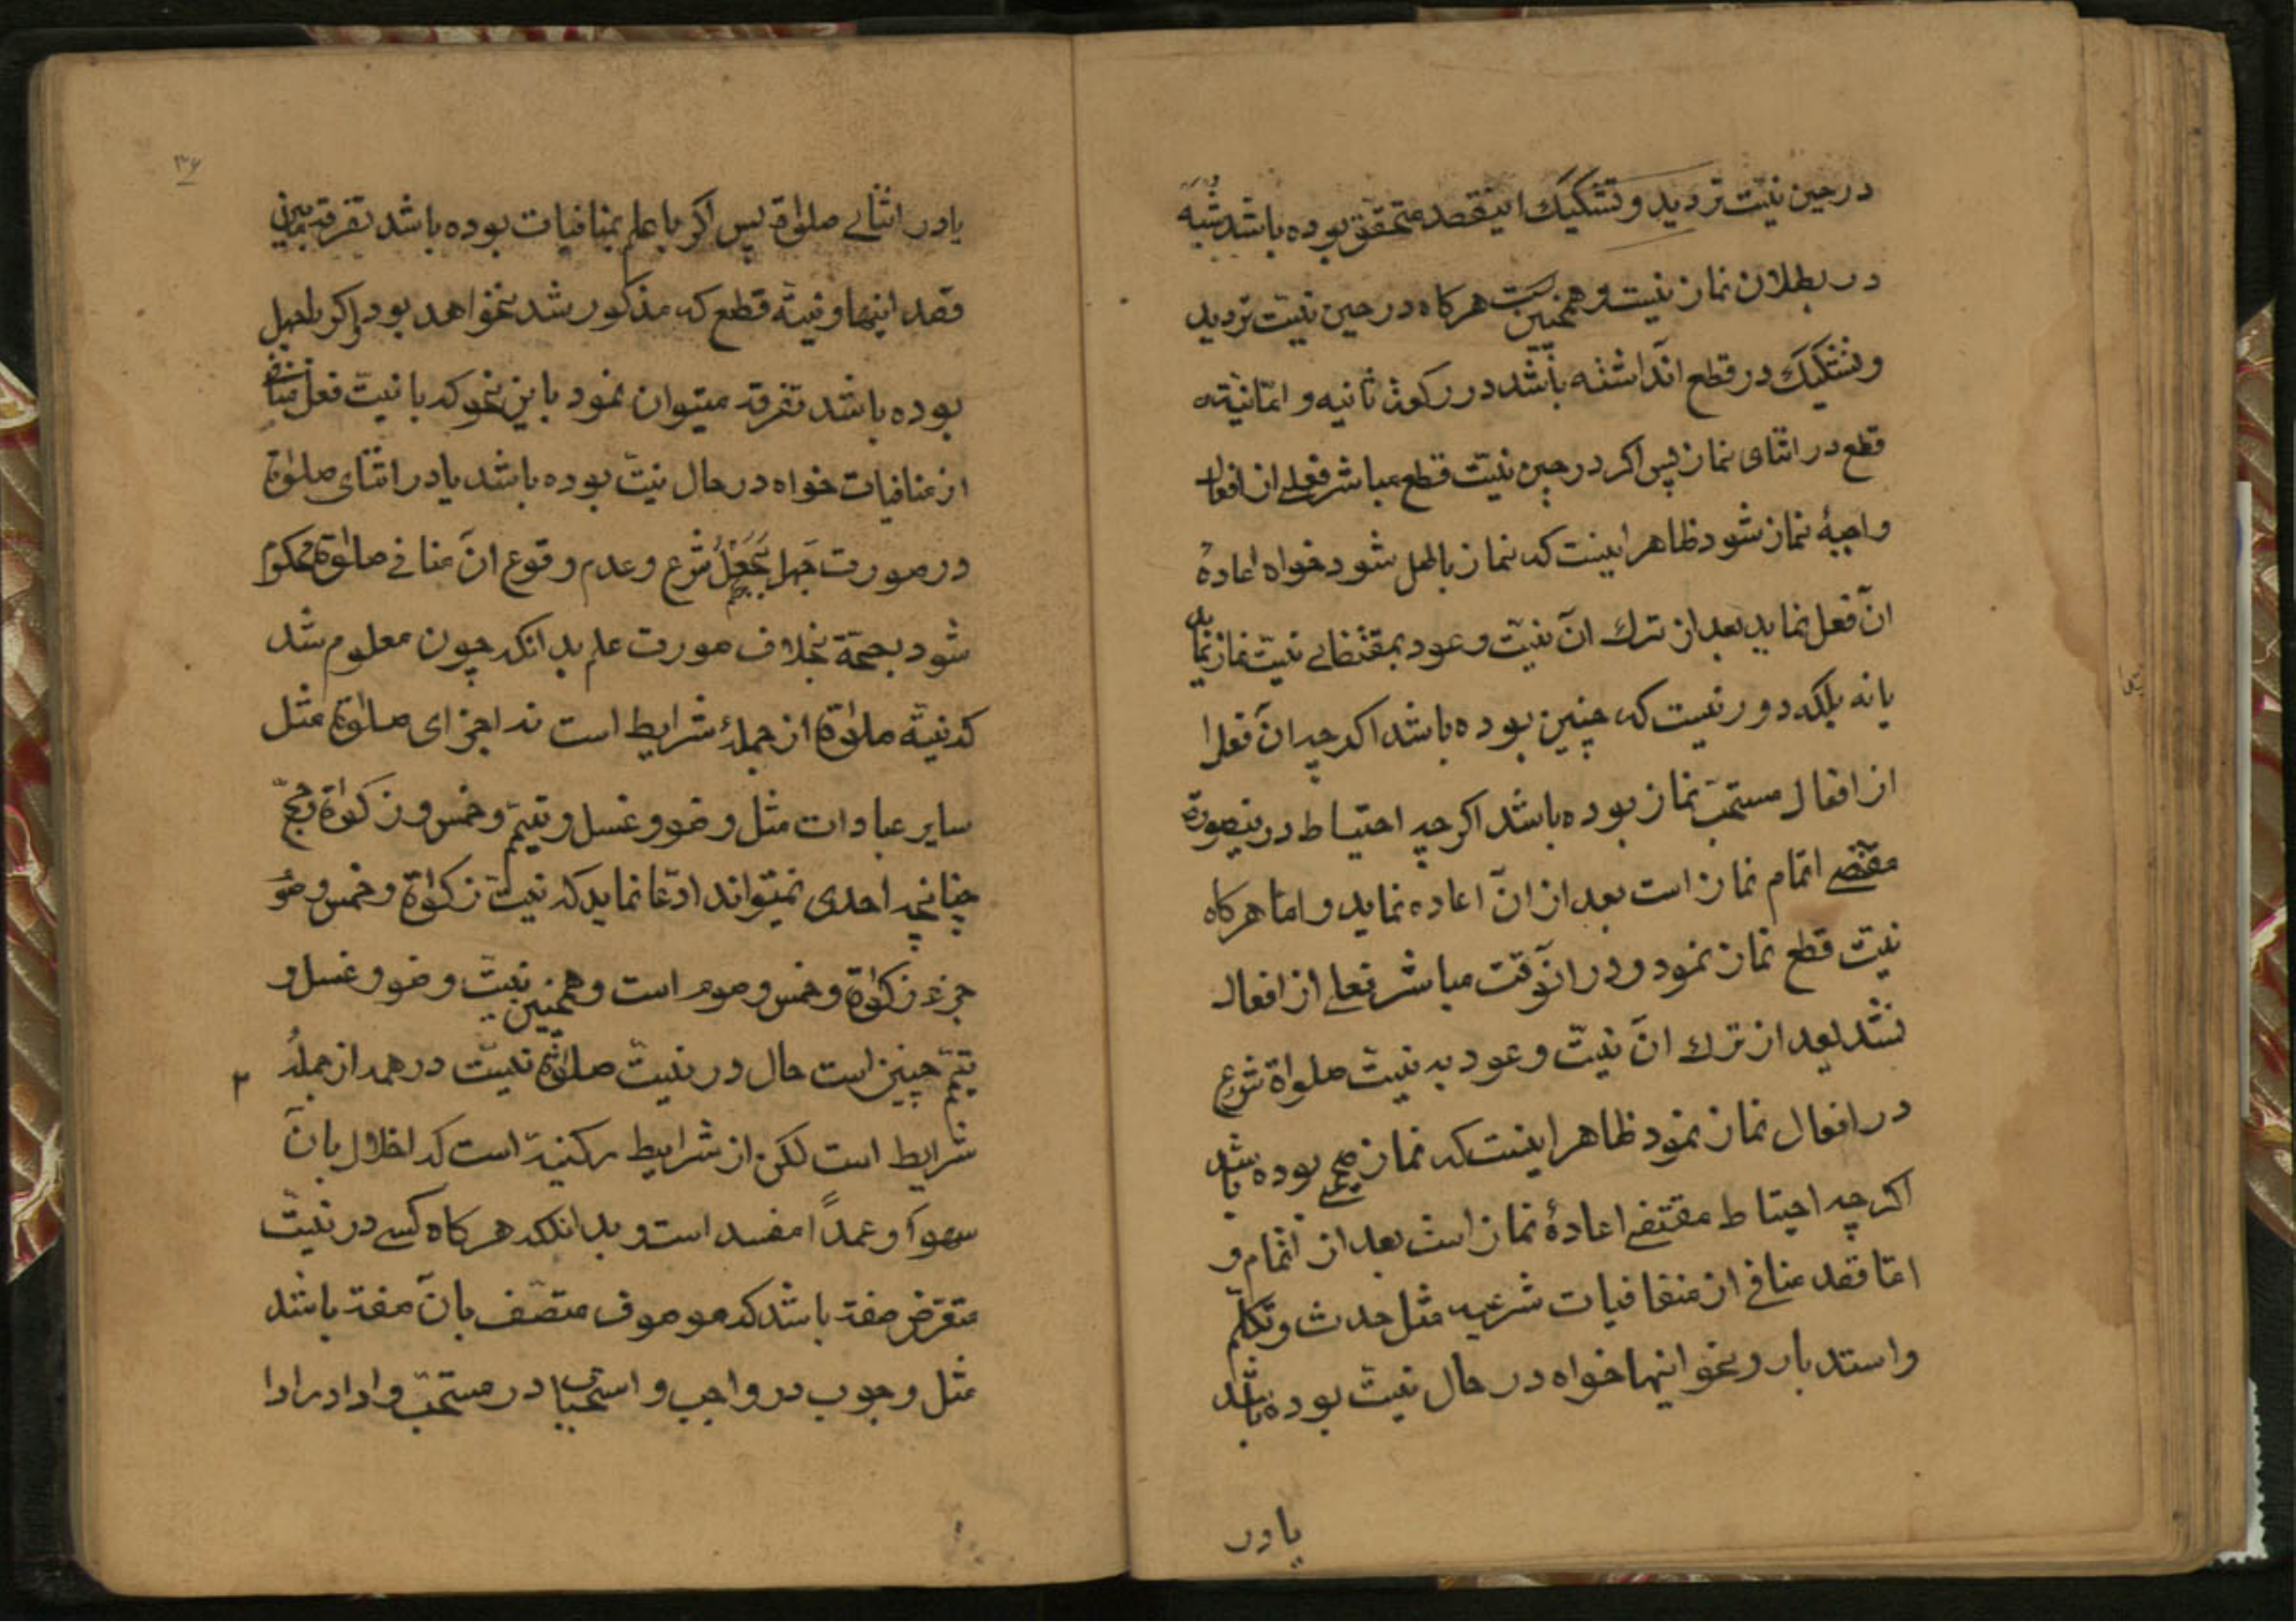 در حین نیّت تردید و تشکیک اینقصد متحقّق بوده باشد شبهه
در بطلان نماز نیست و همچنین است هرکاه در حین نیّت تردید
و تشکیک در قطع آنداشته باشد در رکعة ثانیه و امّا نیّة
قطع در اثنای نماز پس اکر در حین نیّت قطع مباشر فعلی از افعال
واجبهٔ نماز شود ظاهر اینست که نماز باطل شود خواه اعادهٔ
آن فعل نماید بعد از ترک آن نیّت و عود بمقتضای نیّت نماز نماید
یا نه بلکه دور نیست که چنین بوده باشد اکرچه آن فعل را
از افعال مستحبّ نماز بوده باشد اکرچه احتیاط درینصورة
مقتضی اتمام نماز است بعد از آن اعاده نماید و امّا هرکاه
نیّت قطع نماز نمود و در آنوقت مباشر فعلی از افعال
نشد بعد از ترک آن نیّت و عود به نیّت صلواة شروع
در افعال نماز نمود ظاهر اینست که نماز صحیح بوده باشد
اکرچه احتیاط مقتضی اعادهٔ نماز است بعد از اتمام و
امّا قصد منافی از منفافیات شرعیه مثل حدث و تکلّم
و استدبار و نحو اینها خواه در حال نیّت بوده باشد
یا در
۳۶
یا در اثنای صلوٰة پس اکر با علم بمنافیات بوده باشد تفرقه مابین
قصد اینها و نیّة قطع که مذکور شد نخواهد بود و اکر با جهل
بوده باشد تفرقه میتوان نمود باین نحو که با نیّت فعل منافی
از منافیات خواه در حال نیّت بوده باشد یا در اثنای صلوٰة
در صورت جهل بجعل شرع و عدم وقوع آن منافی صلوٰة محکوم
شود بصحّة بخلاف صورت علم بدانکه چون معلوم شد
که نیّة صلوٰة از جملهٔ شرایط است نه اجزای صلوٰة مثل
سایر عبادات مثل وضو و غسل و تیمّم و خمس و زکوٰة و حجّ
چنانچه احدی نمیتواند ادّعا نماید که نیّت زکوٰة و خمس و صوم
جزء زکوٰة و خمس و صوم است و همچنین نیّت وضو و غسل و
تیمّم چنین است حال در نیّت صلوٰة نیّت در همه از جملهٔ
شرایط است لکن از شرایط رکنیة است که اخلال بان
سهواً و عمداً مفسد است و بدانکه هرکاه کسی در نیّت
متعرّض صفة باشد که موصوف متصّف بآن صفة باشد
مثل وجوب در واجب و استحباب در مستحبّ و ادا در ادا